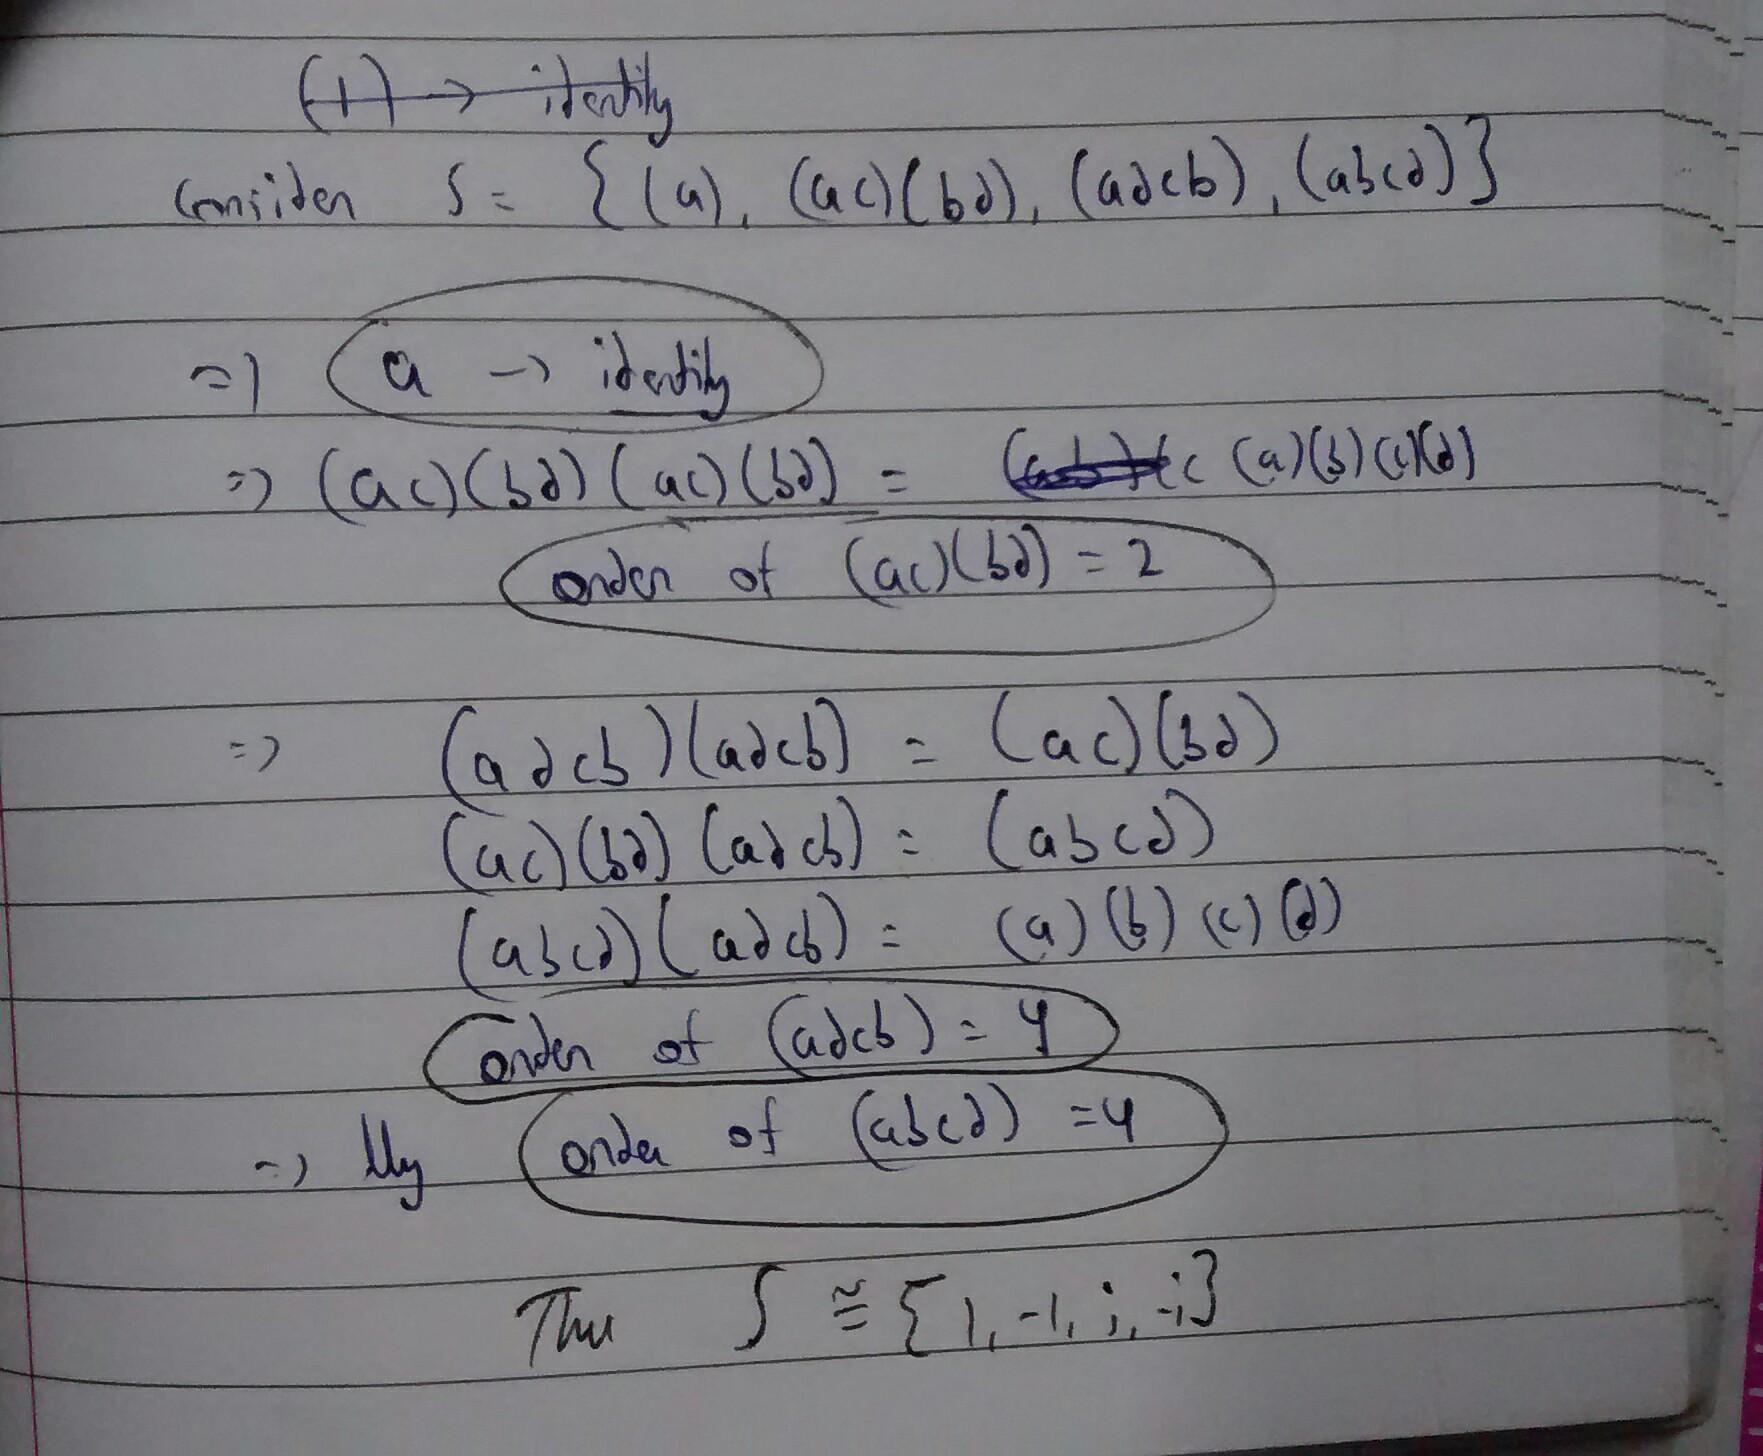 (1) → identity
Consider S = { (a), (ac)(bd), (adcb), (abcd) }
=> a → identity
=> (ac)(bd)(ac)(bd) = (a)(b)(c)(d)
order of (ac)(bd) = 2
=> (adcb)(adcb) = (ac)(bd)
(ac)(bd)(adcb) = (abcd)
(abcd)(adcb) = (a)(b)(c)(d)
order of (adcb) = 4
=> lly order of (abcd) = 4
Thus S ≅ {1, -1, i, -i}